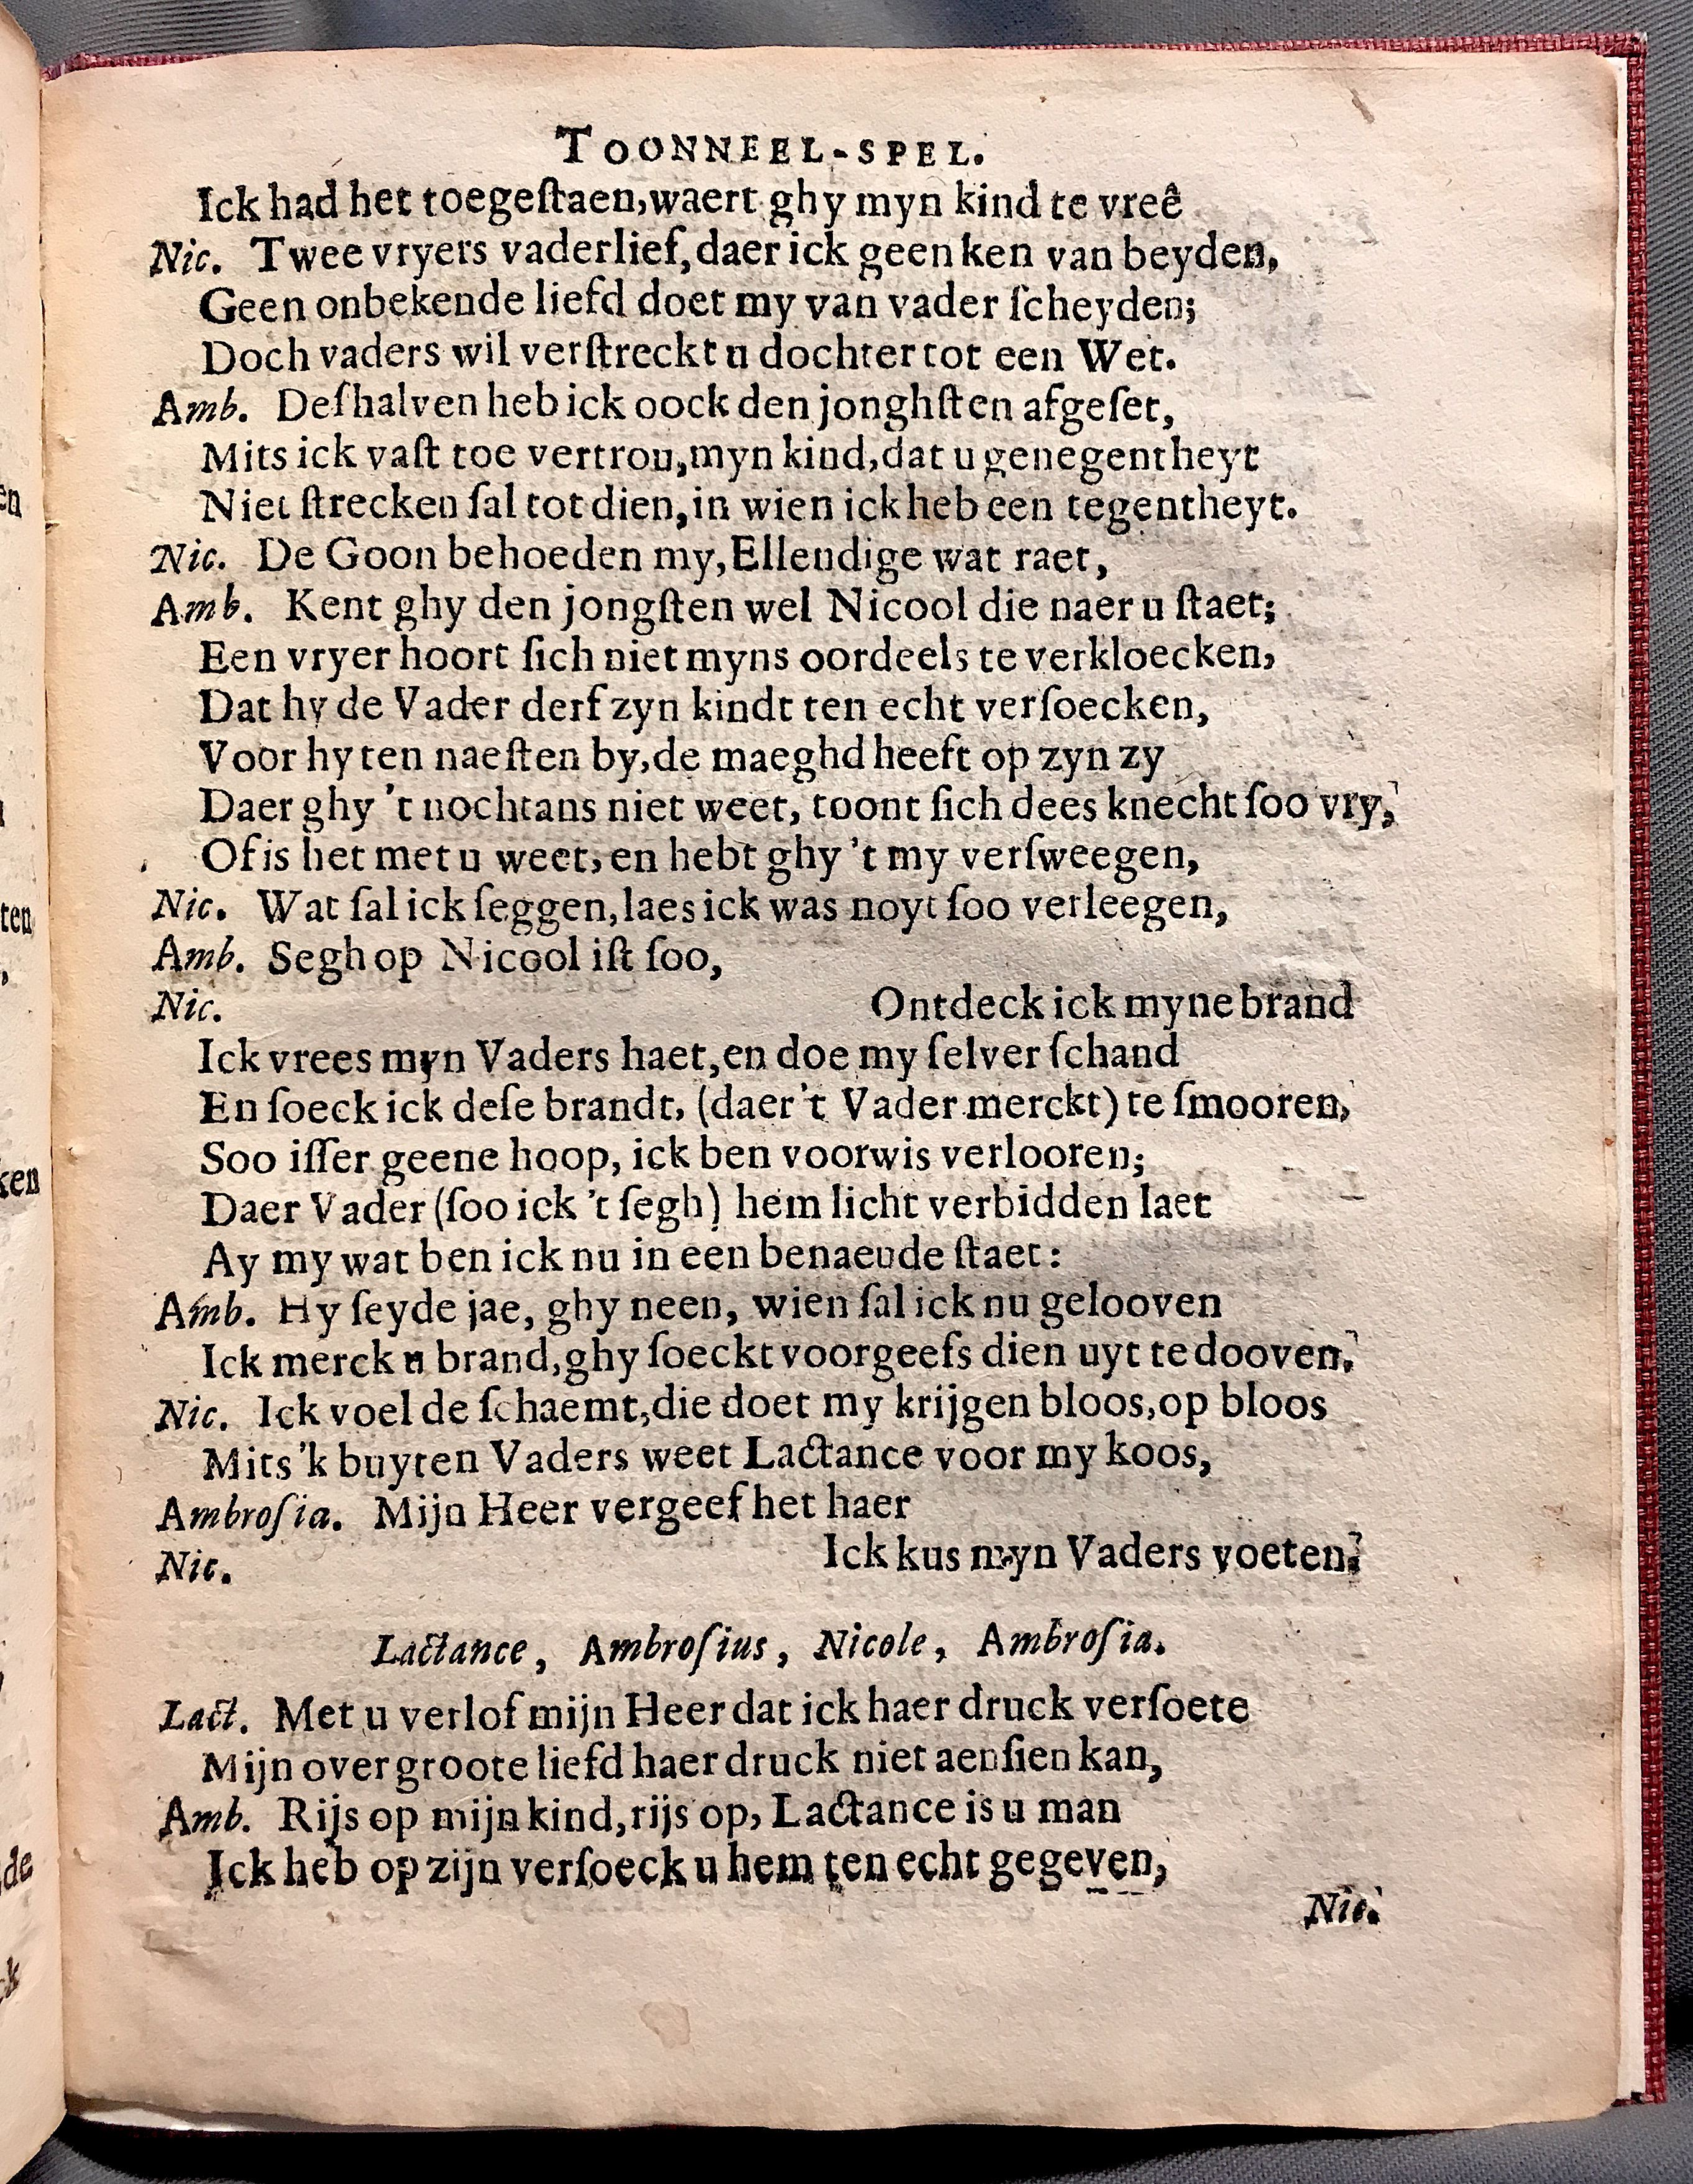 TOONNEEL-SPEL.
Ick had het toegeſtaen, waert ghy myn kind te vreê
Nic. Twee vryers vaderlief, daer ick geen ken van beyden,
Geen onbekende liefd doet my van vader ſcheyden;
Doch vaders wil verſtreckt u dochter tot een Wet.
Amb. Deſhalven heb ick oock den jonghſten afgeſet,
Mits ick vaſt toe vertrou, myn kind, dat u genegentheyt
Niet ſtrecken ſal tot dien, in wien ick heb een tegentheyt.
Nic. De Goon behoeden my, Ellendige wat raet,
Amb. Kent ghy den jongſten wel Nicool die naer u ſtaet;
Een vryer hoort ſich niet myns oordeels te verkloecken,
Dat hy de Vader derf zyn kindt ten echt verſoecken,
Voor hy ten naeſten by, de maeghd heeft op zyn zy
Daer ghy 't nochtans niet weet, toont ſich dees knecht ſoo vry,
Of is het met u weet, en hebt ghy 't my verſweegen,
Nic. Wat ſal ick ſeggen, laes ick was noyt ſoo verleegen,
Amb. Segh op Nicool iſt ſoo,
Nic. Ontdeck ick myne brand
Ick vrees myn Vaders haet, en doe my ſelver ſchand
En ſoeck ick deſe brandt, (daer 't Vader merckt) te ſmooren,
Soo iſſer geene hoop, ick ben voorwis verlooren;
Daer Vader (ſoo ick 't ſegh) hem licht verbidden laet
Ay my wat ben ick nu in een benaeude ſtaet:
Amb. Hy ſeyde jae, ghy neen, wien ſal ick nu gelooven
Ick merck u brand, ghy ſoeckt voorgeefs dien uyt te dooven.
Nic. Ick voel de ſchaemt, die doet my krijgen bloos, op bloos
Mits 'k buyten Vaders weet Lactance voor my koos,
Ambroſia. Mijn Heer vergeef het haer
Nic. Ick kus myn Vaders voeten.
Lactance, Ambroſius, Nicole, Ambroſia.
Lact. Met u verlof mijn Heer dat ick haer druck verſoete
Mijn over groote liefd haer druck niet aenſien kan,
Amb. Rijs op mijn kind, rijs op, Lactance is u man
Ick heb op zijn verſoeck u hem ten echt gegeven,
Nic.